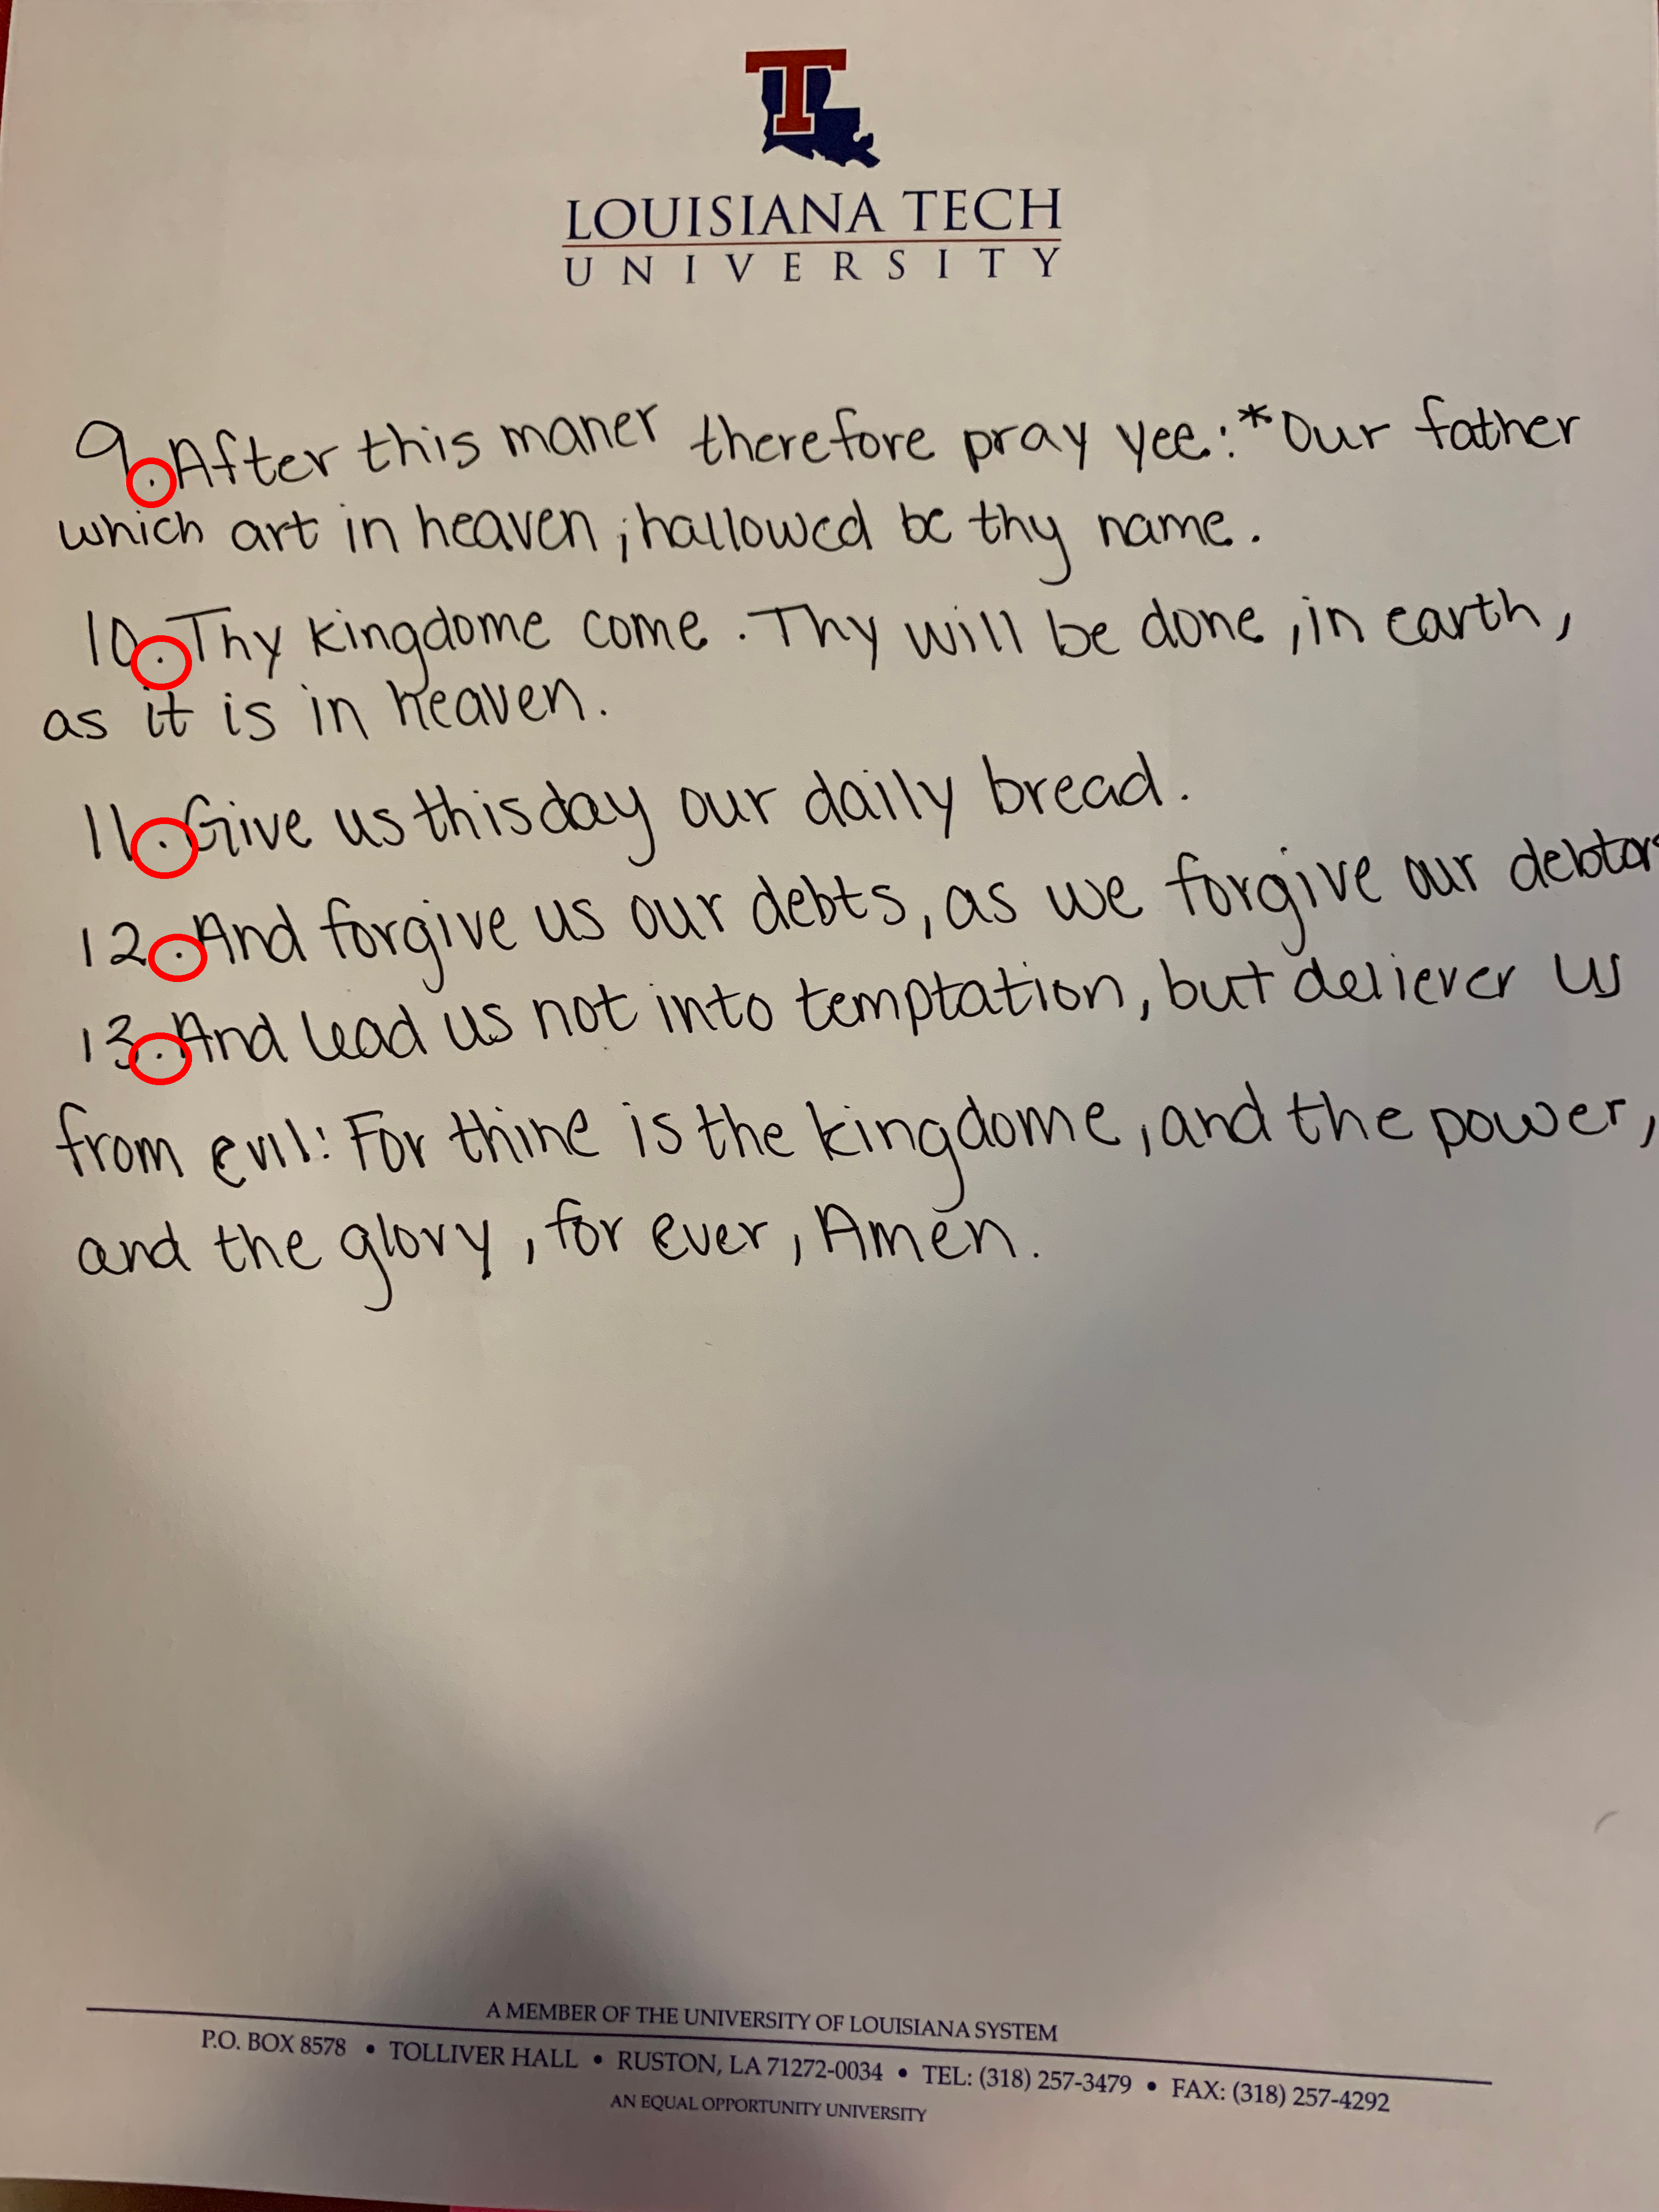 T
LOUISIANA TECH
UNIVERSITY
9. After this maner therefore pray yee: *Our father
which art in heaven; hallowed be thy name.
10. Thy kingdome come. Thy will be done, in earth,
as it is in heaven.
11. Give us this day our daily bread.
12. And forgive us our debts, as we forgive our debtors
13. And lead us not into temptation, but deliever us
from evil: For thine is the kingdome, and the power,
and the glory, for ever, Amen.
A MEMBER OF THE UNIVERSITY OF LOUISIANA SYSTEM
P.O. BOX 8578 • TOLLIVER HALL • RUSTON, LA 71272-0034 • TEL: (318) 257-3479 • FAX: (318) 257-4292
AN EQUAL OPPORTUNITY UNIVERSITY